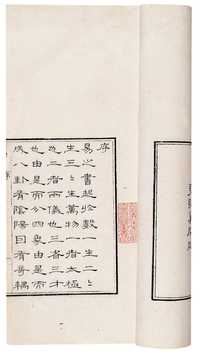 序
易之書起於數一生二〻
生三〻生萬物一者太極
也二者兩儀也三者三才
也由是而分四象由是而
成八卦有陰陽囙有奇耦